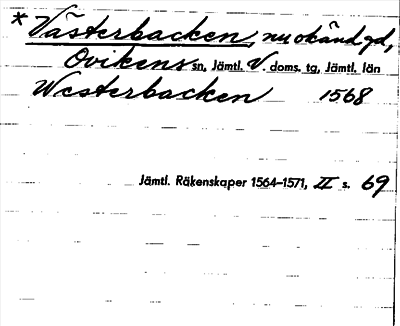 * Västerbacken, nu okänd gd,
Ovikens sn, Jämtl. V. doms. tg, Jämtl. län
Westerbacken 1568
Jämtl. Räkenskaper 1564–1571, II s. 69